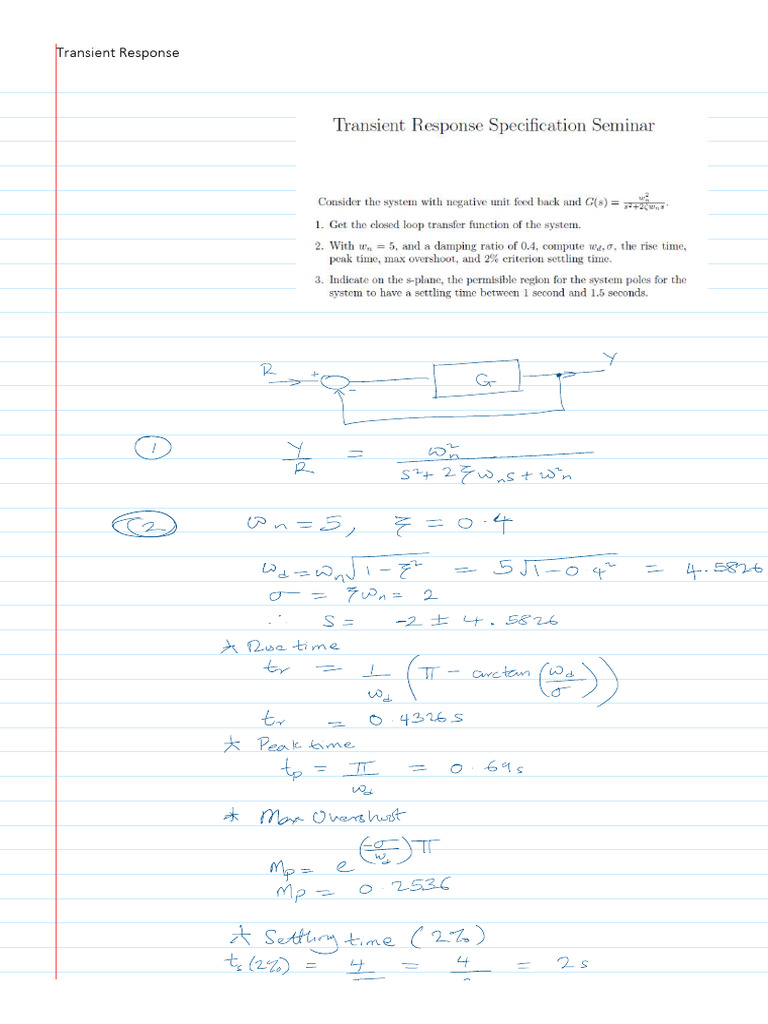 Transient Response
Transient Response Specification Seminar
Consider the system with negative unit feed back and G(s) = w_n^2 / (s^2+2ζw_n s).
1. Get the closed loop transfer function of the system.
2. With w_n = 5, and a damping ratio of 0.4, compute w_d, σ, the rise time,
peak time, max overshoot, and 2% criterion settling time.
3. Indicate on the s-plane, the permisible region for the system poles for the
system to have a settling time between 1 second and 1.5 seconds.
R + - G Y
① Y/R = ω_n^2 / (s^2 + 2ξω_n s + ω_n^2)
② ω_n = 5, ξ = 0.4
ω_d = ω_n√(1 - ξ^2) = 5√(1 - 0.4^2) = 4.5826
σ = ξω_n = 2
∴ s = -2 ± 4.5826
* Rise time
t_r = 1/ω_d (π - arctan(ω_d/σ))
t_r = 0.4326 s
* Peak time
t_p = π/ω_d = 0.69s
* Max Overshoot
M_p = e^((-σ/ω_d)π)
M_p = 0.2536
* Settling time (2%)
t_s(2%) = 4 = 4 = 2s